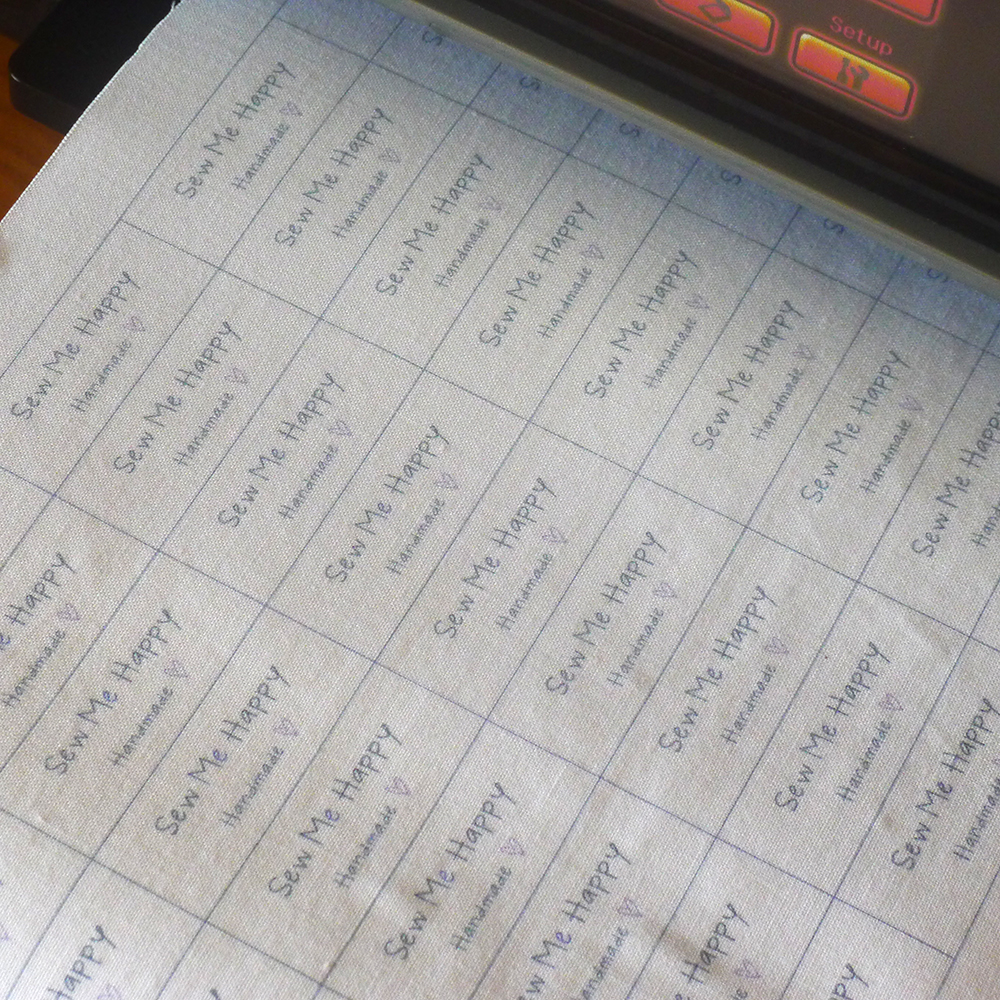 Setup
Sew Me Happy
Handmade
Sew Me Happy
Handmade
Sew Me Happy
Handmade
Sew Me Happy
Handmade
Sew Me Happy
Handmade
Sew Me Happy
Handmade
Sew Me Happy
Handmade
Sew Me Happy
Sew Me Happy
Handmade
Sew Me Happy
Handmade
Sew Me Happy
Handmade
Sew Me Happy
Handmade
Sew Me Happy
Handmade
Sew Me Happy
Handmade
Sew Me Happy
Handmade
Sew Me Happy
Handmade
Sew Me Happy
Handmade
Happy
Handmade
Sew Me Happy
Handmade
Sew Me Happy
Handmade
Sew Me Happy
Handmade
Sew Me Happy
Handmade
Me Happy
Handmade
Me Happy
Happy